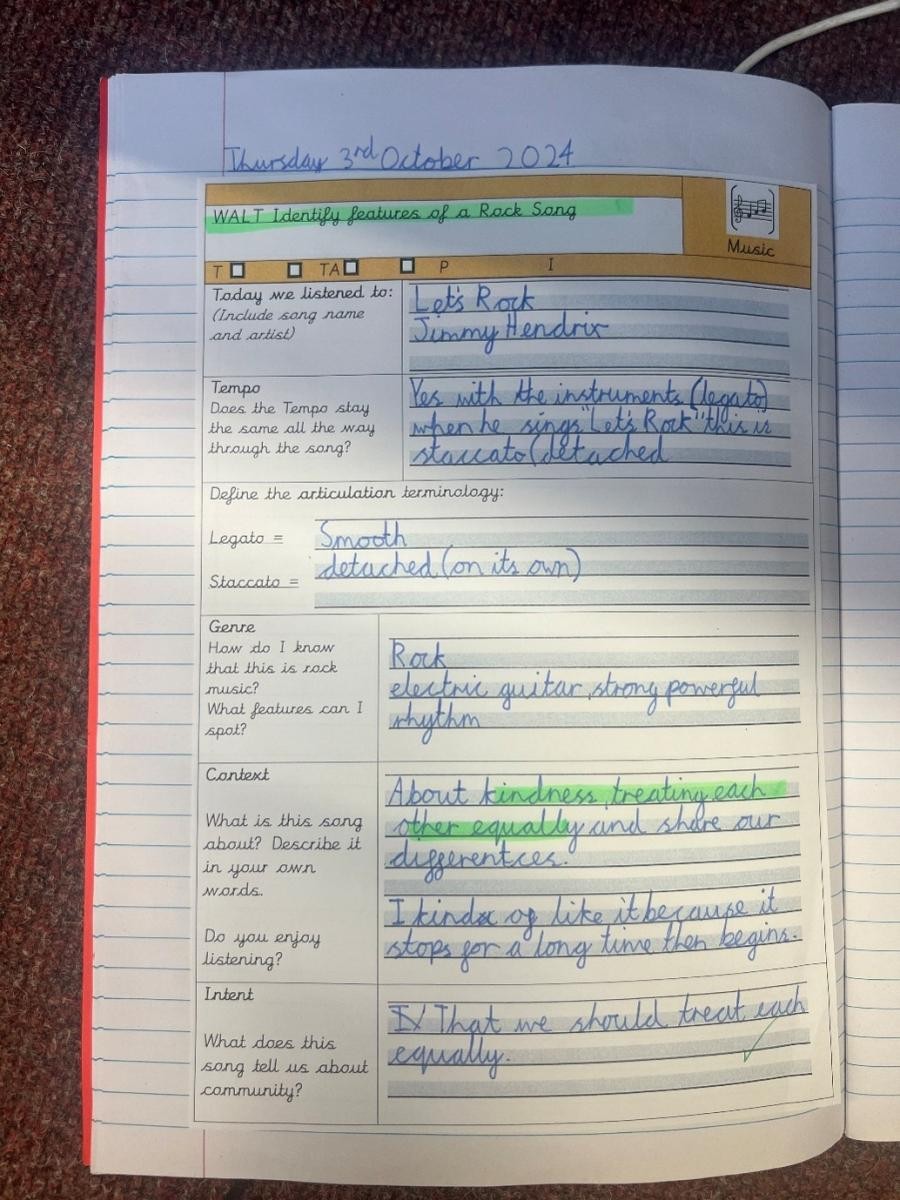 Thursday 3rd October 2024
WALT Identify features of a Rock Song
Music
T TA P I
Today we listened to:
(Include song name
and artist)
Let's Rock
Jimmy Hendrix
Tempo
Does the Tempo stay
the same all the way
through the song?
Yes with the instruments (legato)
when he sings "Let's Rock" this is
staccato (detached
Define the articulation terminology:
Legato = Smooth
Staccato = detached (on its own)
Genre
How do I know
that this is rock
music?
What features can I
spot?
Rock
electric guitar, strong powerful
rhythm
Context
What is this song
about? Describe it
in your own
words.
Do you enjoy
listening?
About kindness, treating each
other equally and share our
differentces.
I kinda of like it because it
stops for a long time then begins.
Intent
What does this
song tell us about
community?
That we should treat each
equally.